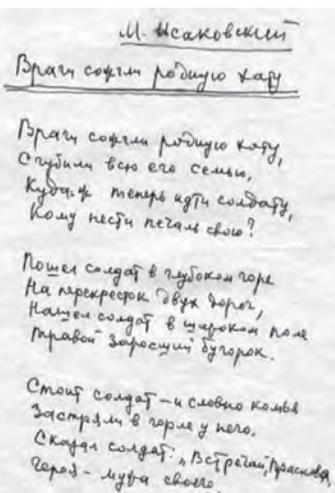 М. Исаковский
Враги сожгли родную хату
Враги сожгли родную хату,
Сгубили всю его семью,
Куда ж теперь идти солдату,
Кому нести печаль свою?
Пошел солдат в глубоком горе
На перекресток двух дорог,
Нашел солдат в широком поле
Травой заросший бугорок.
Стоит солдат – и словно комья
Застряли в горле у него.
Сказал солдат: „Встречай, Прасковья,
Героя – мужа своего